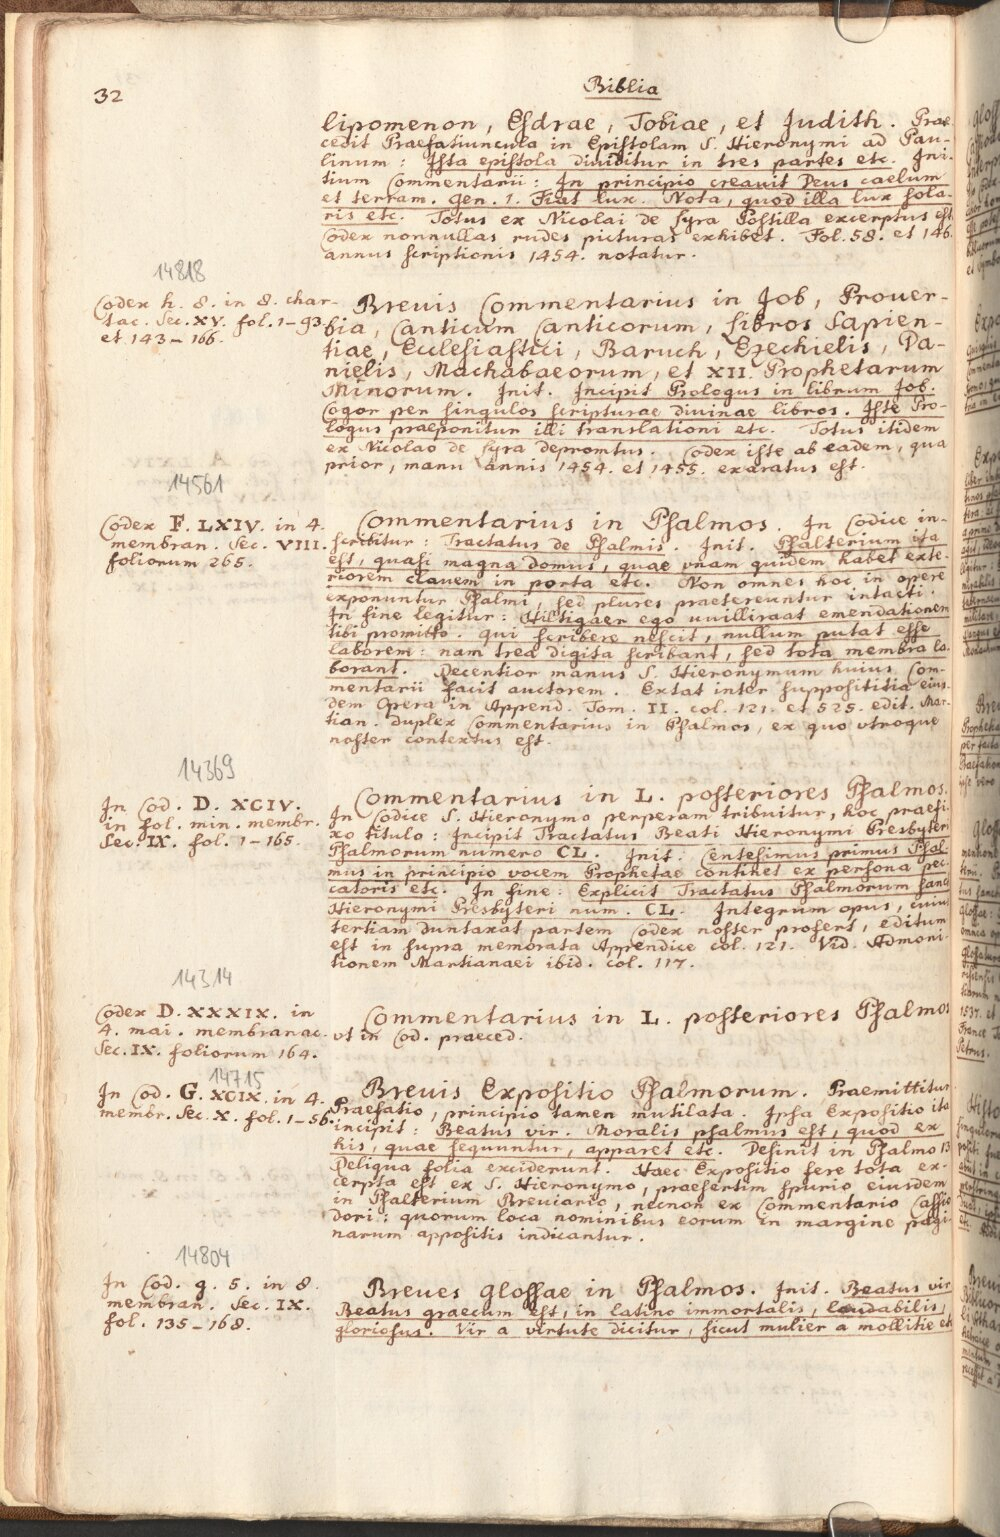 32
Biblia
lipomenon, Esdrae, Tobiae, et Judith. Prae-
cedit Praefatiuncula in Epistolam S. Hieronymi ad Pau-
linum: Ista epistola dividitur in tres partes etc. Ini-
tium Commentarii: In principio creauit Deus caelum
et terram. Gen. 1. Fiat lux. Nota, quod illa lux sola-
ris etc. Totus ex Nicolai de Lyra Postilla excerptus est.
Codex nonnullas rudes picturas exhibet. Fol. 58. et 146.
annus scriptionis 1454. notatur.
14818
Codex h. 8. in 8. char-
tac. Sec. XV. fol. 1-93
et 143-166.
Brevis Commentarius in Job, Prouer-
bia, Canticum Canticorum, Libros Sapien-
tiae, Ecclesiastici, Baruch, Ezechielis, Da-
nielis, Machabaeorum, et XII. Prophetarum
Minorum. Init. Incipit Prologus in librum Job.
Cogor per singulos scripturae diuinae libros. Iste Pro-
logus praeponitur illi translationi etc. Totus itidem
ex Nicolao de Lyra depromtus. Codex iste ab eadem, qua
prior, manu annis 1454. et 1455. exaratus est.
14561
Codex F. LXIV. in 4.
membran. Sec. VIII.
foliorum 265.
Commentarius in Psalmos. In Codice in-
scribitur: Tractatus de Psalmis. Init. Psalterium ita
est, quasi magna domus, quae vnam quidem habet exte-
riorem clauem in porta etc. Non omnes hoc in opere
exponuntur Psalmi, sed plures praetereuntur intacti.
In fine legitur: Hiltigaer ego uuilliraat emendationem
tibi promitto. Qui scribere nescit, nullum putat esse
laborem: nam tres digita scribant, sed tota membra la-
borant. Recentior manus S. Hieronymum huius Com-
mentarii facit auctorem. Extat inter supposititia eius-
dem Opera in Append. Tom. II. col. 121. et 525. edit. Mar-
tian. duplex Commentarius in Psalmos, ex quo vtroque
noster contextus est.
14369
In Cod. D. XCIV.
in fol. min. membr.
Sec. IX. fol. 1-165.
Commentarius in L. posteriores Psalmos.
In Codice S. Hieronymo perperam tribuitur, hoc praefi-
xo titulo: Incipit Tractatus Beati Hieronymi Presbyteri
Psalmorum numero CL. Init: Centesimus primus Psal-
mus in principio vocem Prophetae continet ex persona pec-
catoris etc. In fine: Explicit Tractatus Psalmorum sancti
Hieronymi Presbyteri num. CL. Integrum opus, cuius
tertiam duntaxat partem Codex noster profert, editum
est in supra memorata Appendice col. 121. Vid. Admoni-
tionem Martianaei ibid. col. 117.
14314
Codex D. XXXIX. in
4. mai. membranac.
Sec. IX. foliorum 164.
Commentarius in L. posteriores Psalmos
vt in Cod. praeced.
14715
In Cod. G. XCIX. in 4.
membr. Sec. X. fol. 1-56.
Brevis Expositio Psalmorum. Praemittitur
Praefatio, principio tamen mutilata. Ipsa Expositio ita
incipit: Beatus vir. Moralis psalmus est, quod ex
his, quae sequuntur, apparet etc. Definit in Psalmo 13
Reliqua folia exciderunt. Haec Expositio fere tota ex-
cerpta est ex S. Hieronymo, praesertim spurio eiusdem
in Psalterium Breuiario, necnon ex Commentario Cassio-
dori: quorum loca nominibus eorum in margine pagi-
narum appositis indicantur.
14804
In Cod. g. 5. in 8.
membran. Sec. IX.
fol. 135-168.
Breues glossae in Psalmos. Init. Beatus vir
Beatus graecum est, in latino immortalis, laudabilis,
gloriosus. Vir a virtute dicitur, sicut mulier a mollitie etc